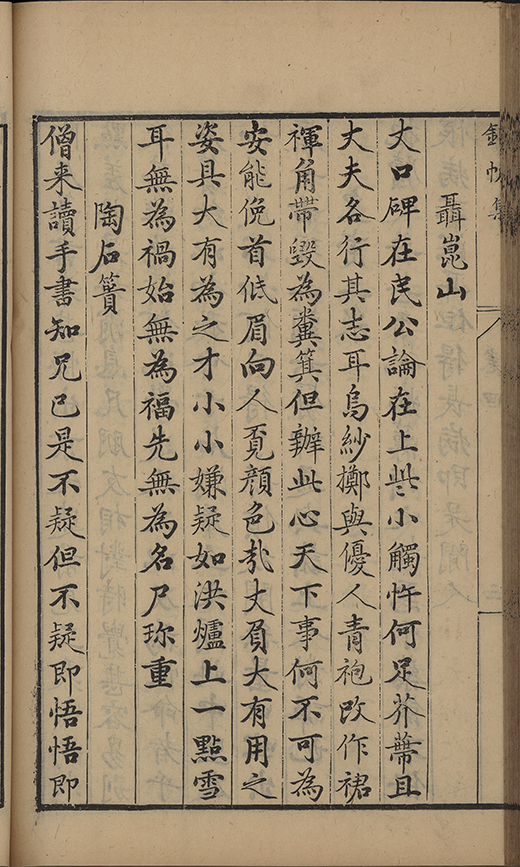 聶崑山
丈口碑在民公論在上些小觸忤何足芥蔕且
丈夫各行其志耳烏紗擲與優人青袍改作裙
褌角帶毀為糞箕但辦此心天下事何不可為
安能俛首低眉向人覔顏色㢤丈負大有用之
姿具大有為之才小小嫌疑如洪爐上一點雪
耳無為禍始無為福先無為名尸珎重
陶石簣
僧来讀手書知兄已是不疑但不疑即悟悟即